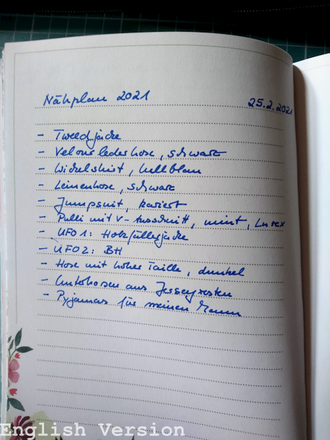 Nähplan 2021 25.2.2021
- Tweedjacke
- Velourslederhose, schwarz
- Wickelshirt, hellblau
- Leinenhose, schwarz
- Jumpsuit, kariert
- Pulli mit V-Ausschnitt, mint, Lurex
- UFO 1: Holzfällerjacke
- UFO 2: BH
- Hose mit hoher Taille, dunkel
- Unterhosen aus Jerseyresten
- Pyjamas für meinen Mann
English Version